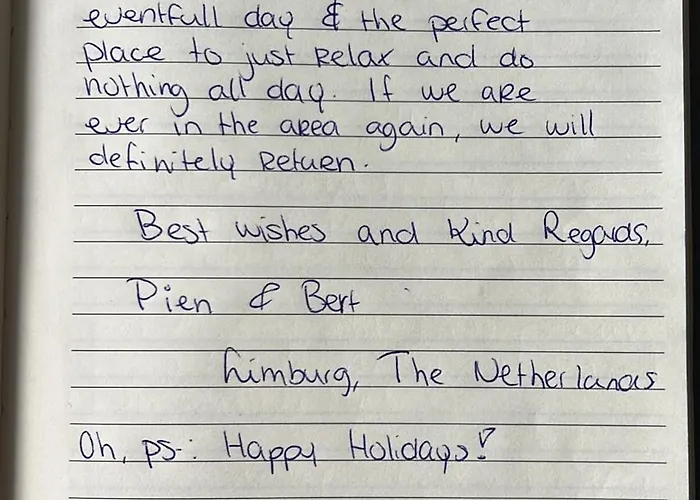 eventfull day & the perfect
place to just relax and do
nothing all day. If we are
ever in the area again, we will
definitely return.
Best wishes and kind Regards,
Pien & Bert
Limburg, The Netherlands
Oh, ps-: Happy Holidays!